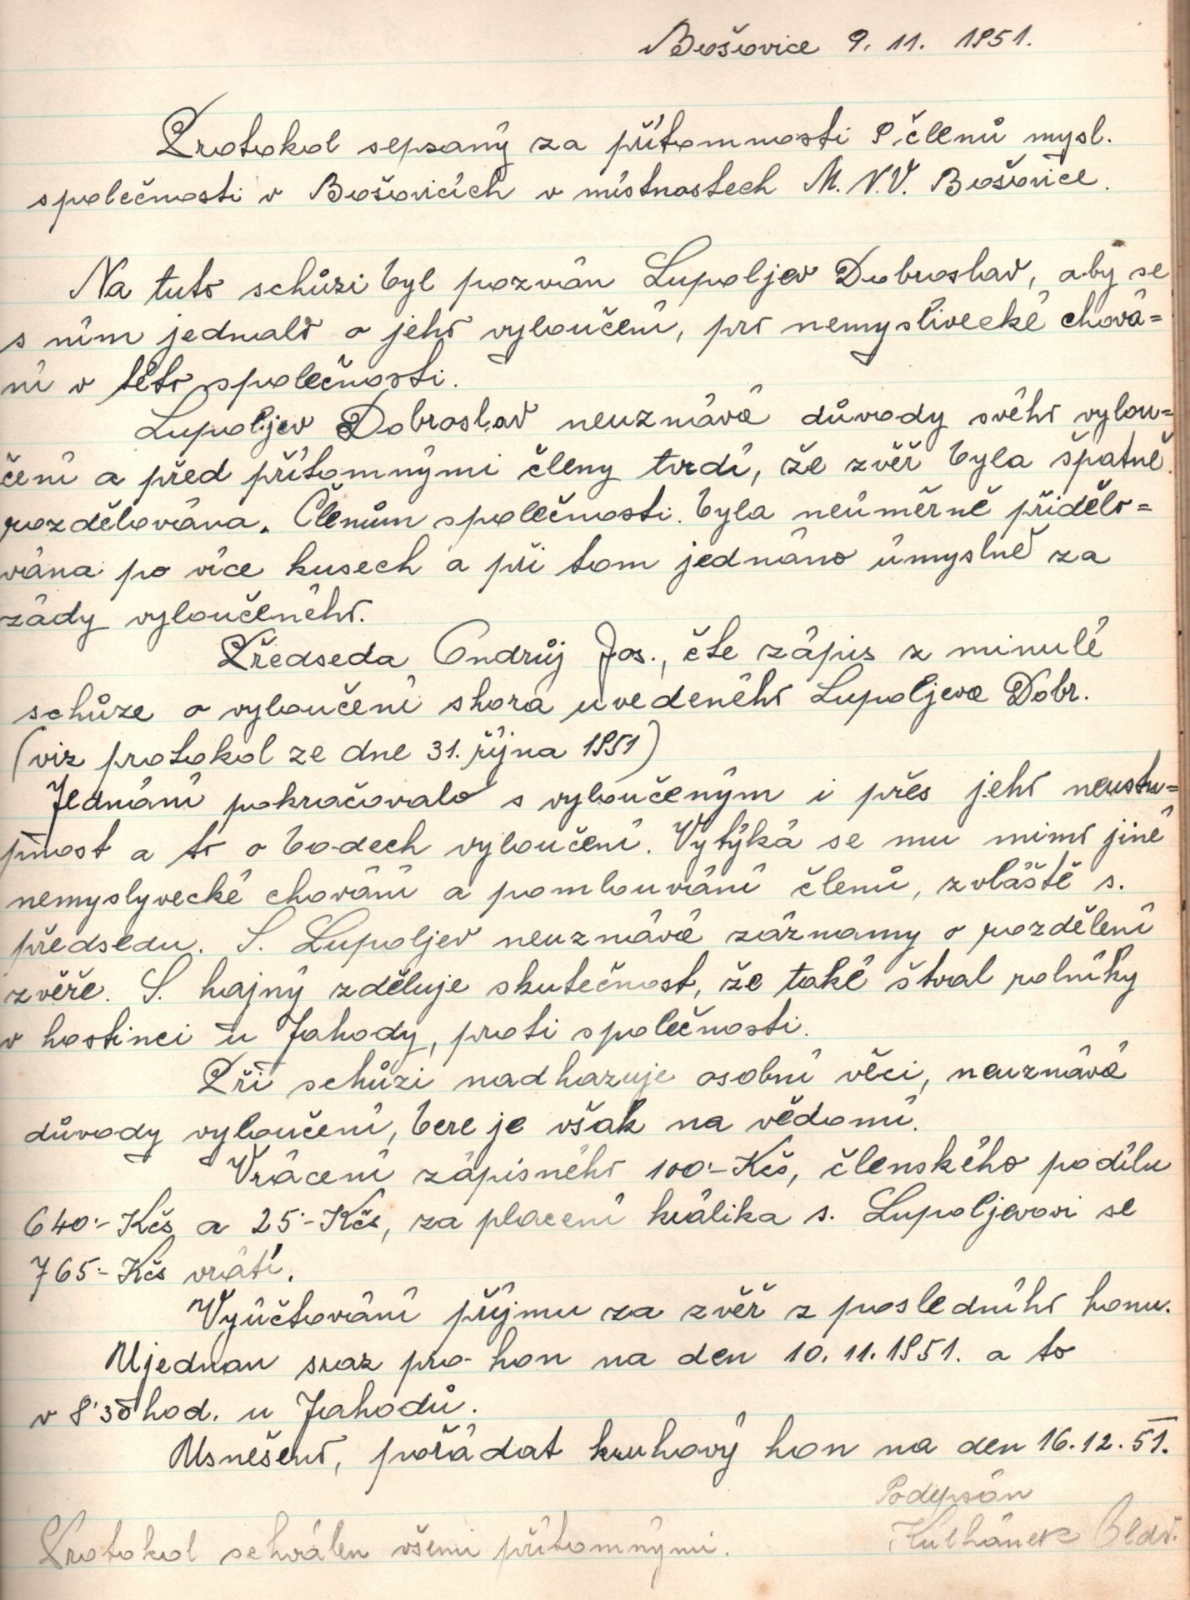 Bošovice 9. 11. 1951.
Protokol sepsaný za přítomnosti 8 členů mysl.
společnosti v Bošovicích v místnostech M.N.V. Bošovice.
Na tuto schůzi byl pozván Lupoljev Dobroslav, aby se
s ním jednalo o jeho vyloučení, pro nemyslivecké chová=
ní v této společnosti.
Lupoljev Dobroslav neuznává důvody svého vylou=
čení a před přítomnými členy tvrdí, že zvěř byla špatně
rozdělována. Členům společnosti byla neúměrně přidělo=
vána po více kusech a při tom jednáno úmyslně za
zády vyloučeného.
Předseda Ondrůj Jos., čte zápis z minulé
schůze o vyloučení shora uvedeného Lupoljeva Dobr.
(viz protokol ze dne 31. října 1951)
Jednání pokračovalo s vyloučeným i přes jeho neustu=
pnost a to o bodech vyloučení. Vytýká se mu mimo jiné
nemyslyvecké chování a pomlouvání členů, zvláště s.
předsedu. S. Lupoljev neuznává záznamy o rozdělení
zvěře. S. hajný zděluje skutečnost, že také štval rolníky
v hostinci u Jahody, proti společnosti.
Při schůzi nadhazuje osobní věci, neuznává
důvody vyloučení, bere je však na vědomí.
Vrácení zápisného 100·- Kčs, členského podílu
640·- Kčs a 25·- Kčs, za placení králíka s. Lupoljevovi se
765·- Kčs vrátí.
Vyúčtování příjmu za zvěř z posledního honu.
Ujednan sraz pro hon na den 10. 11. 1951. a to
v 8'30 hod. u Jahodů.
Usnešení, pořádat kruhový hon na den 16. 12. 51.
Podepsán
Protokol schválen všemi přítomnými. Kulhánek Oldř.